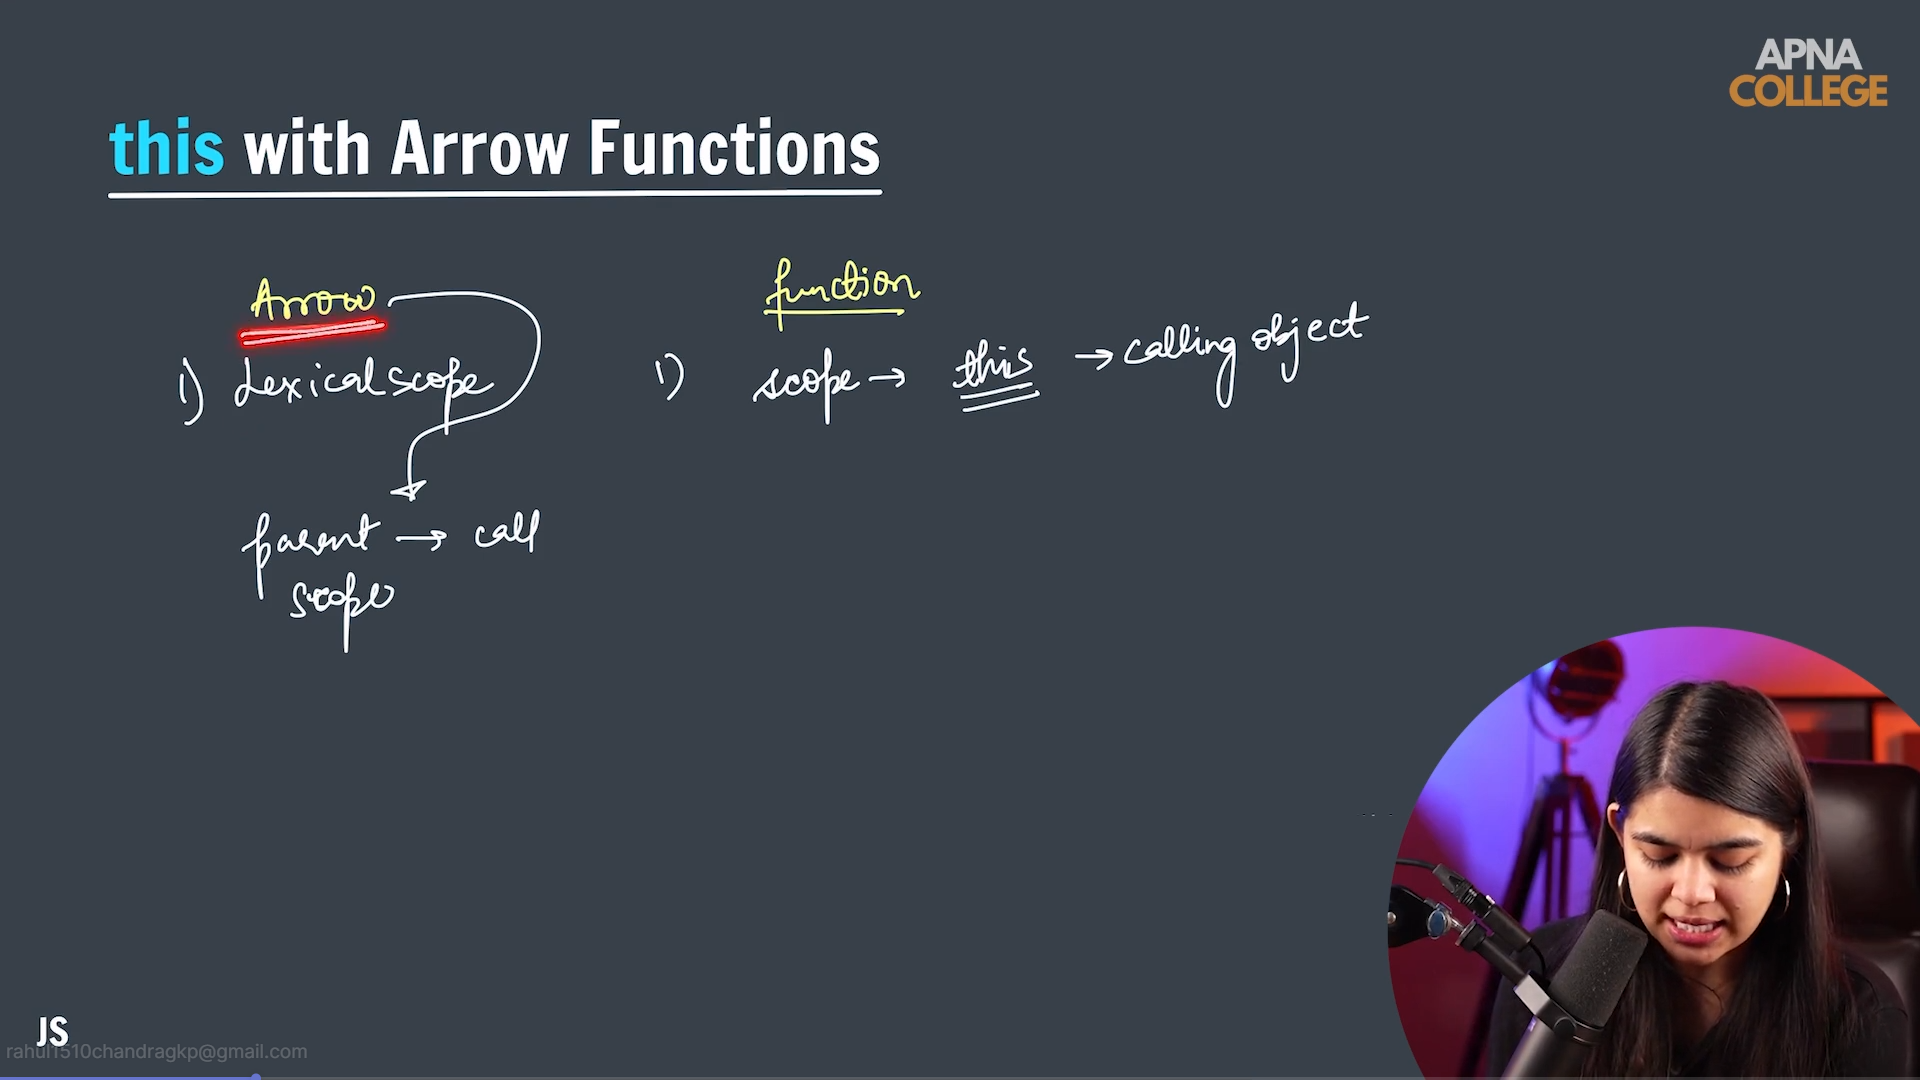 APNA
COLLEGE
this with Arrow Functions
Arrow
1) Lexical scope
parent → call
scope
function
1) scope → this → calling object
JS
rahul1510chandragkp@gmail.com